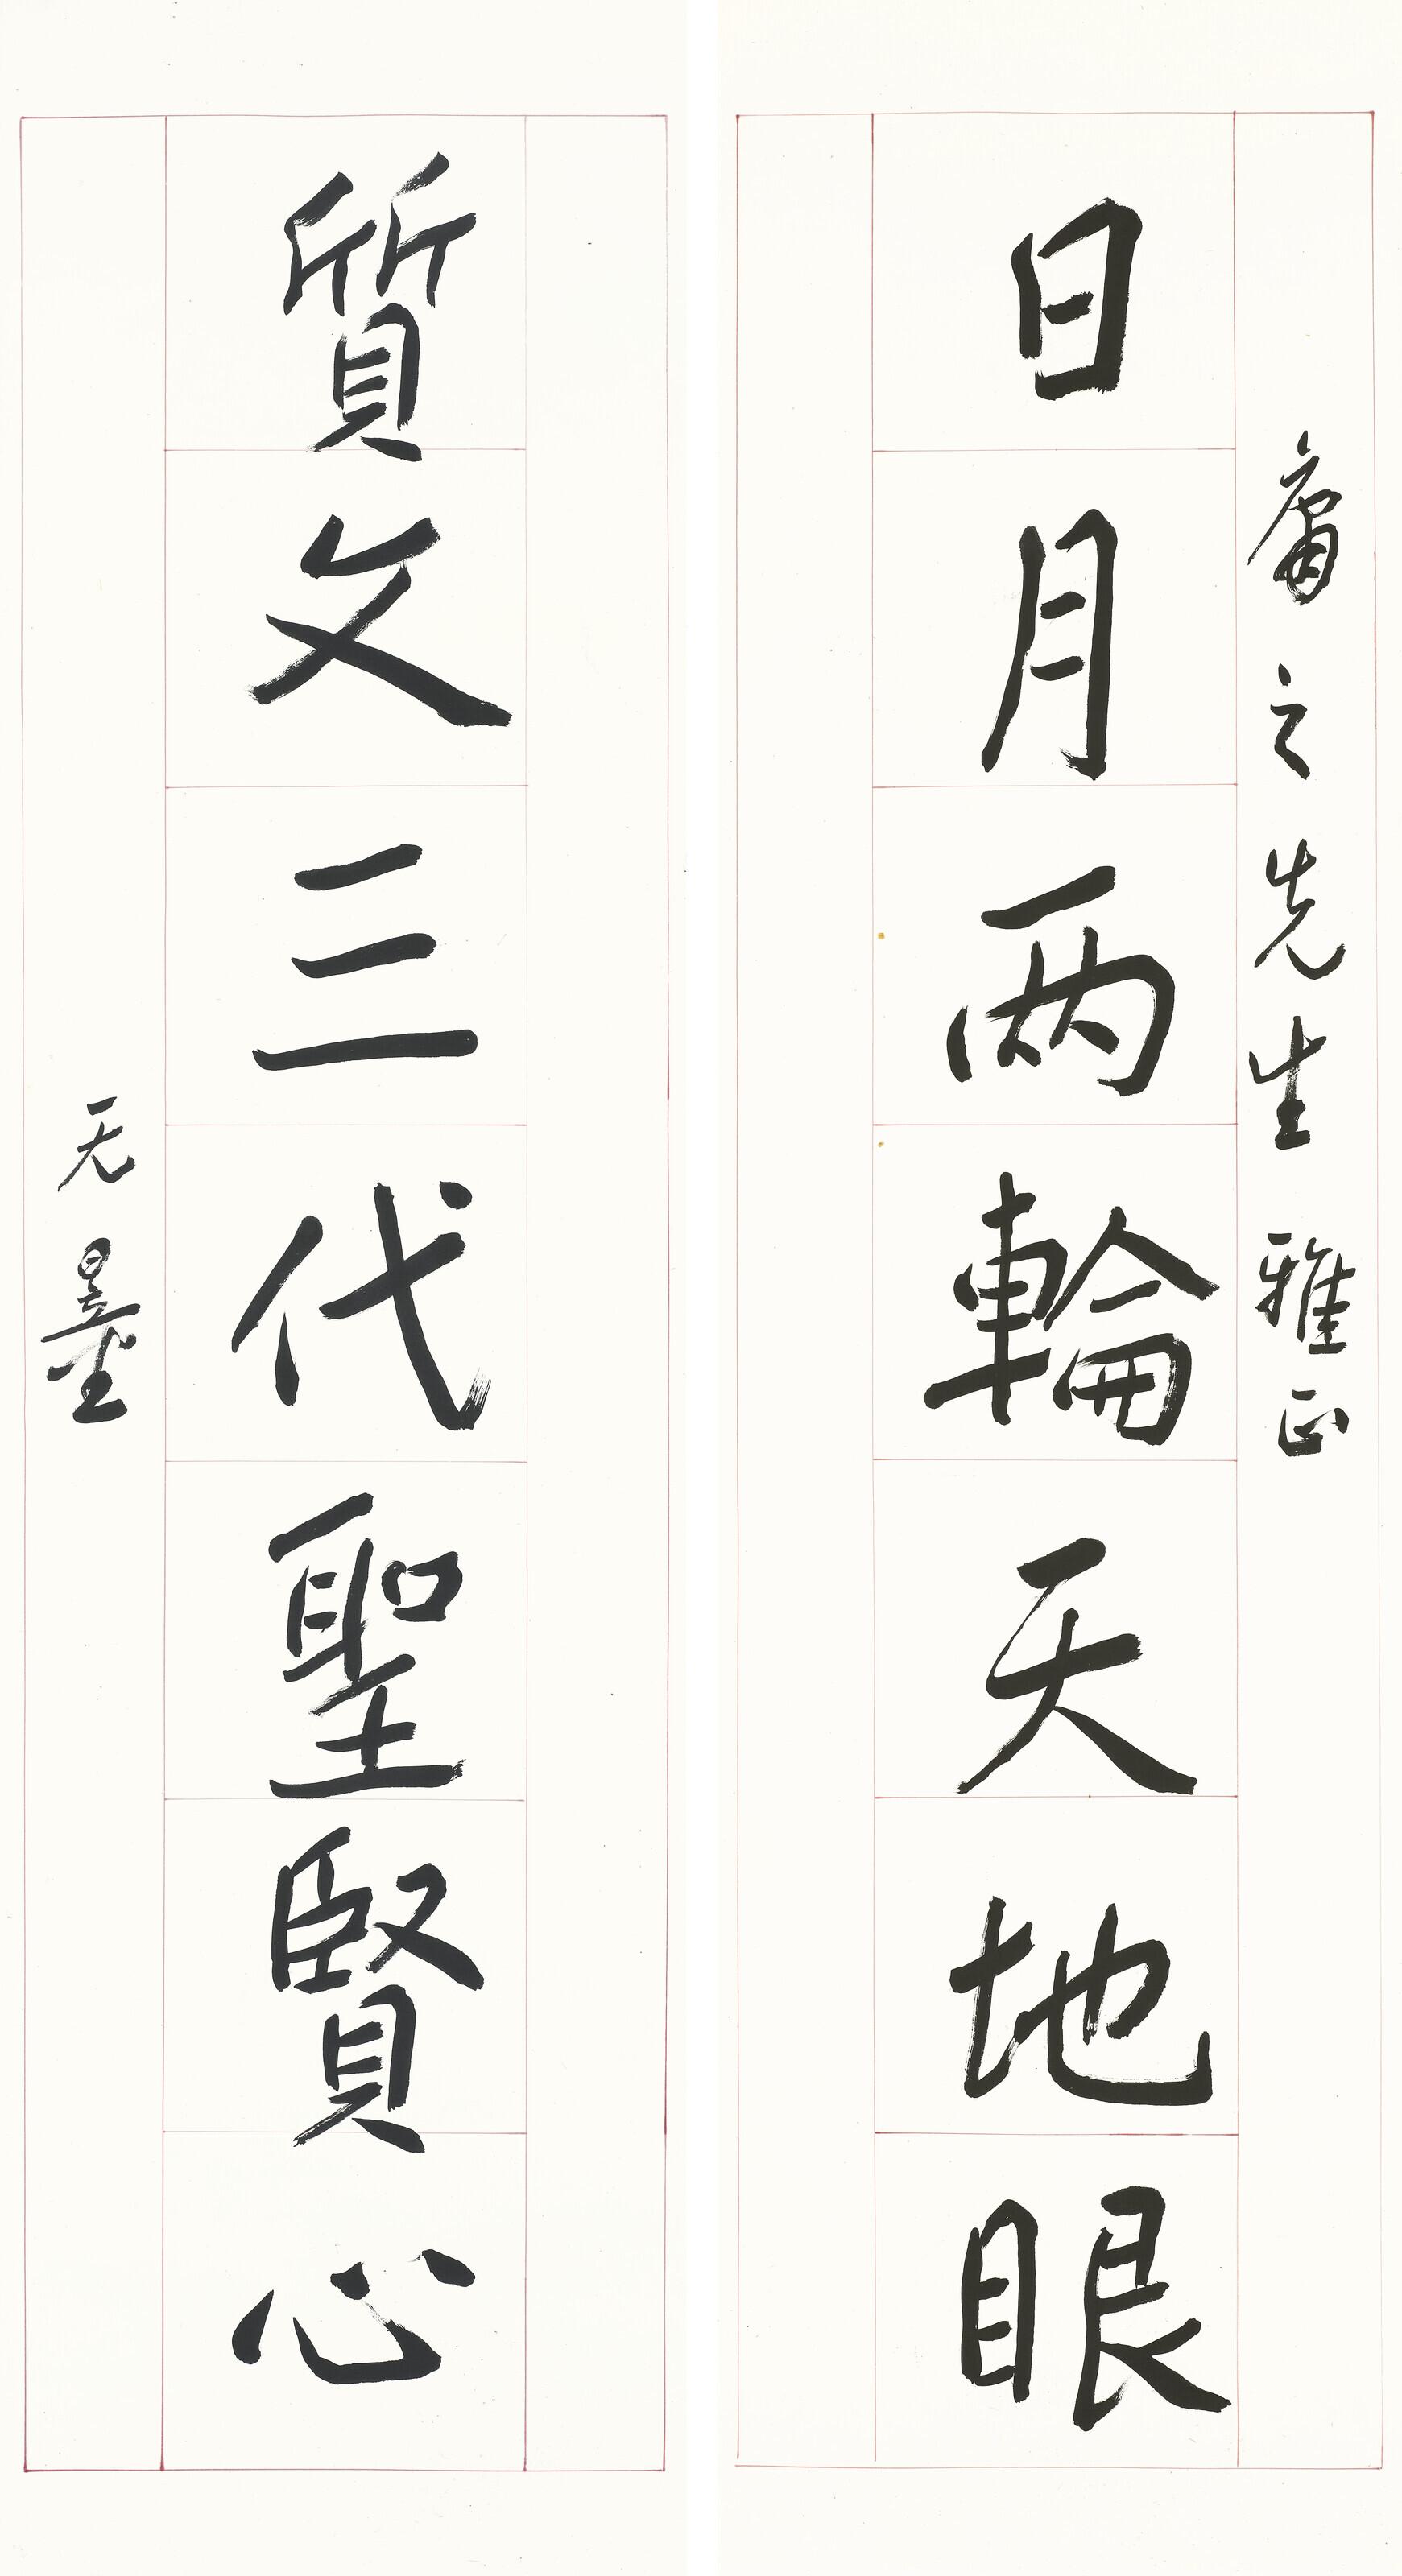 庸之先生雅正
日月兩輪天地眼
質文三代聖賢心
无量